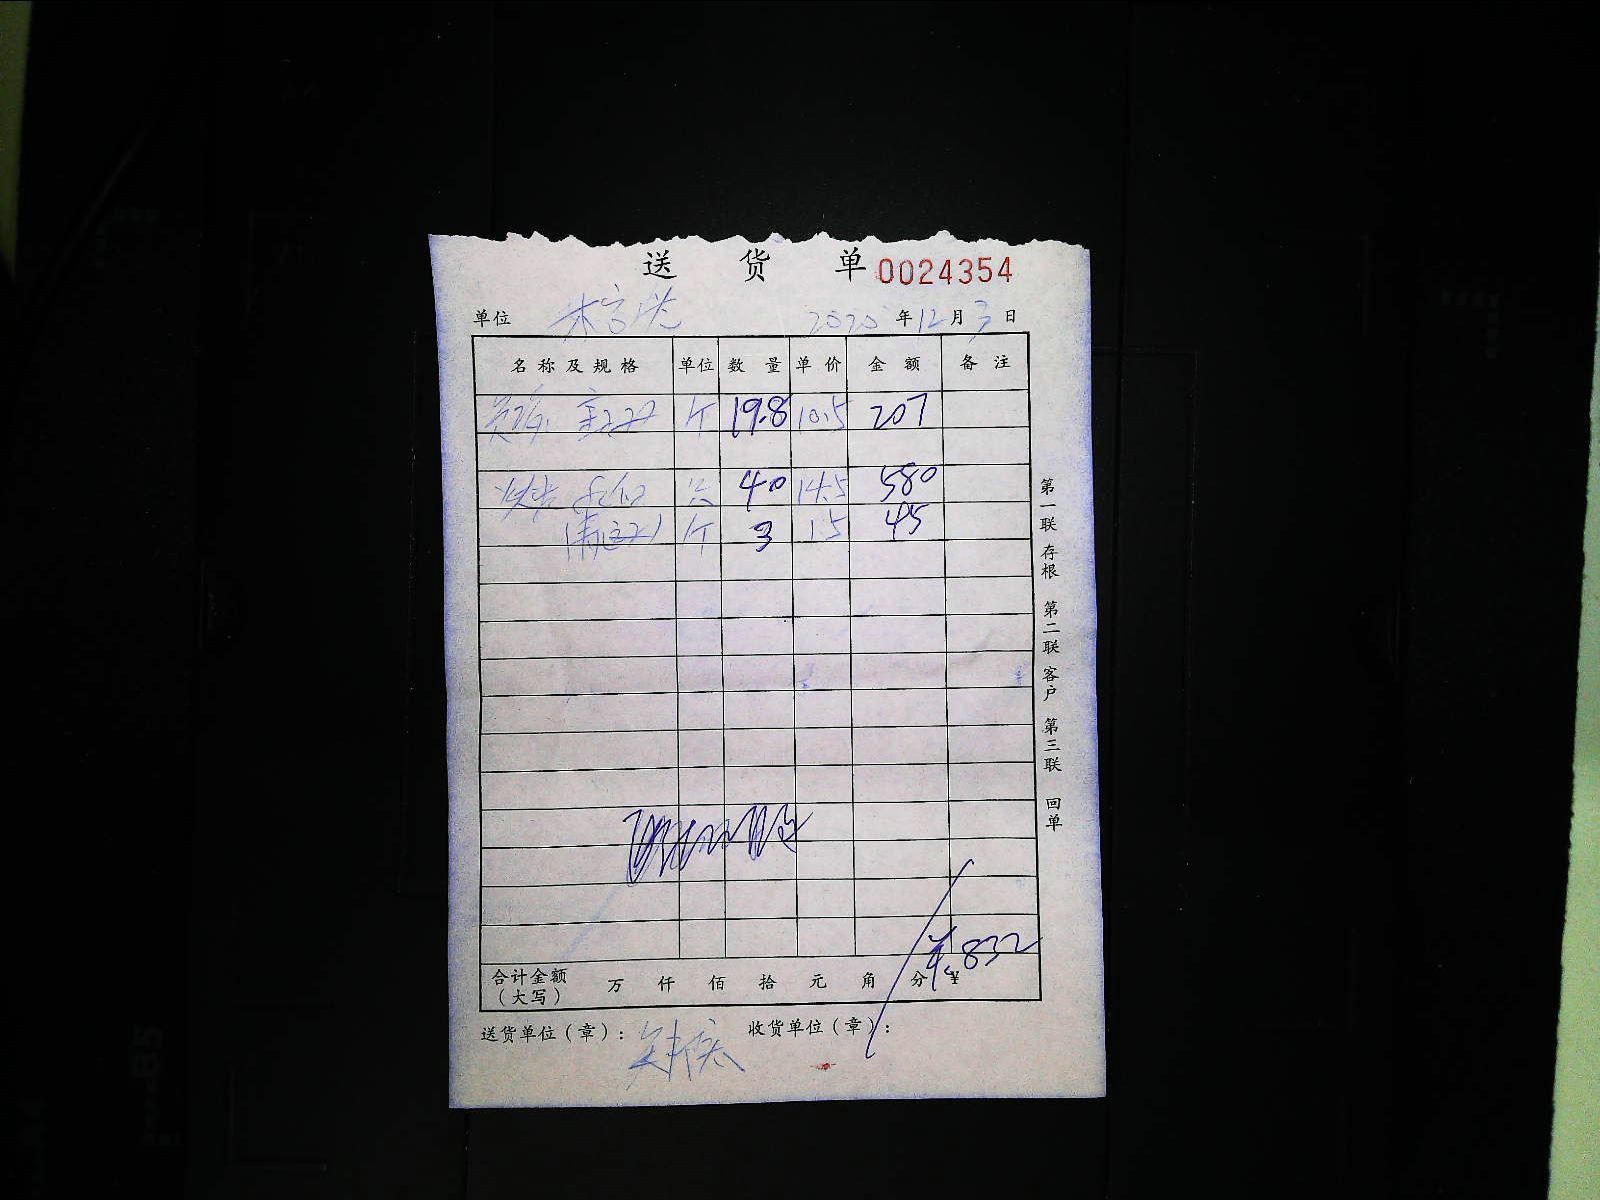 送 货 单 0024354
单位 2020 年 12 月 3 日
名称及规格 单位 数量 单价 金额 备注
个 19.8 10.5 207
只 40 14.5 580
个 3 15 45
¥.832
合计金额（大写） 万 仟 佰 拾 元 角 分 ¥
送货单位（章）： 收货单位（章）：
第一联 存根 第二联 客户 第三联 回单